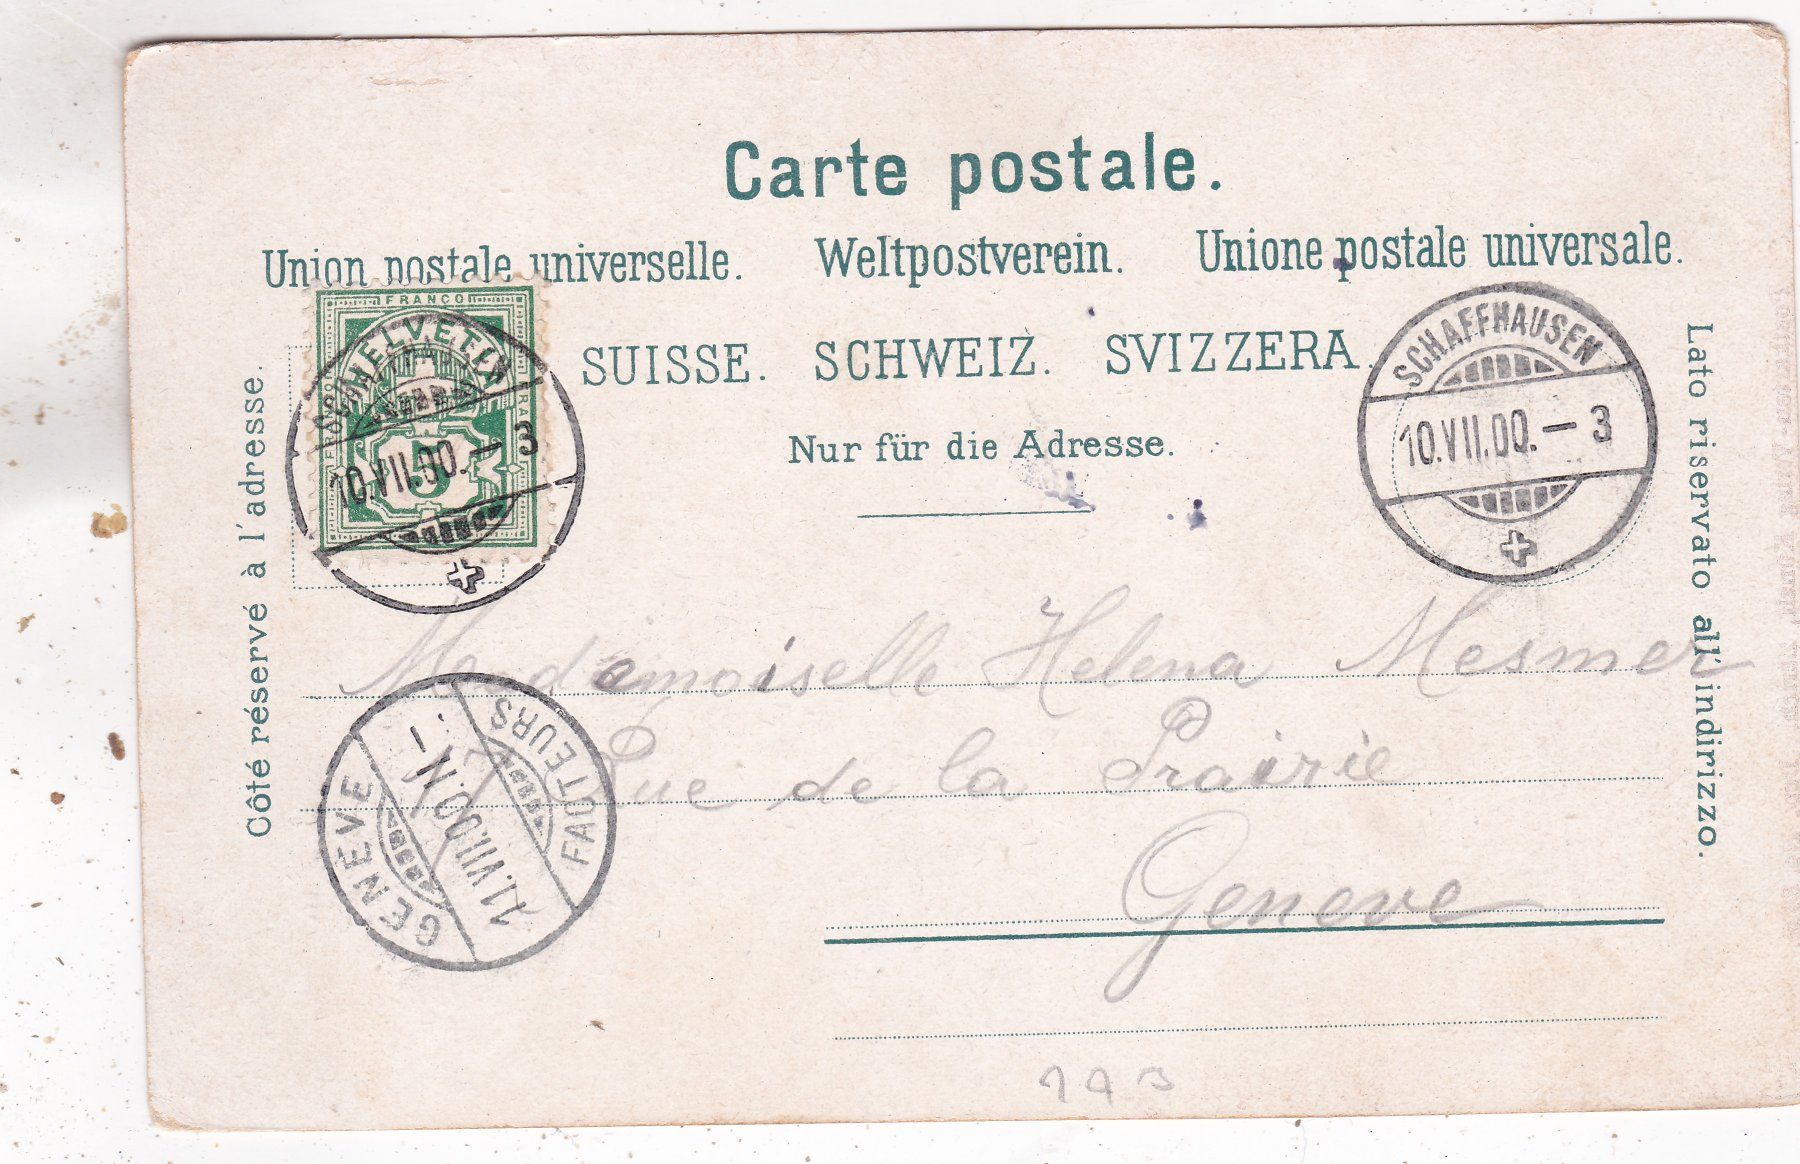 Carte postale.
Union postale universelle. Weltpostverein. Unione postale universale.
SUISSE. SCHWEIZ. SVIZZERA.
Nur für die Adresse.
Côté réservé à l'adresse.
Lato riservato all'indirizzo.
FRANCO
HELVETIA
5
10.VII.00.–3
SCHAFFHAUSEN
10.VII.00.–3
Mademoiselle Helena Mesmer
Rue de la Prairie
Geneve
GENEVE
11.VII.00.IV–
FACTEURS